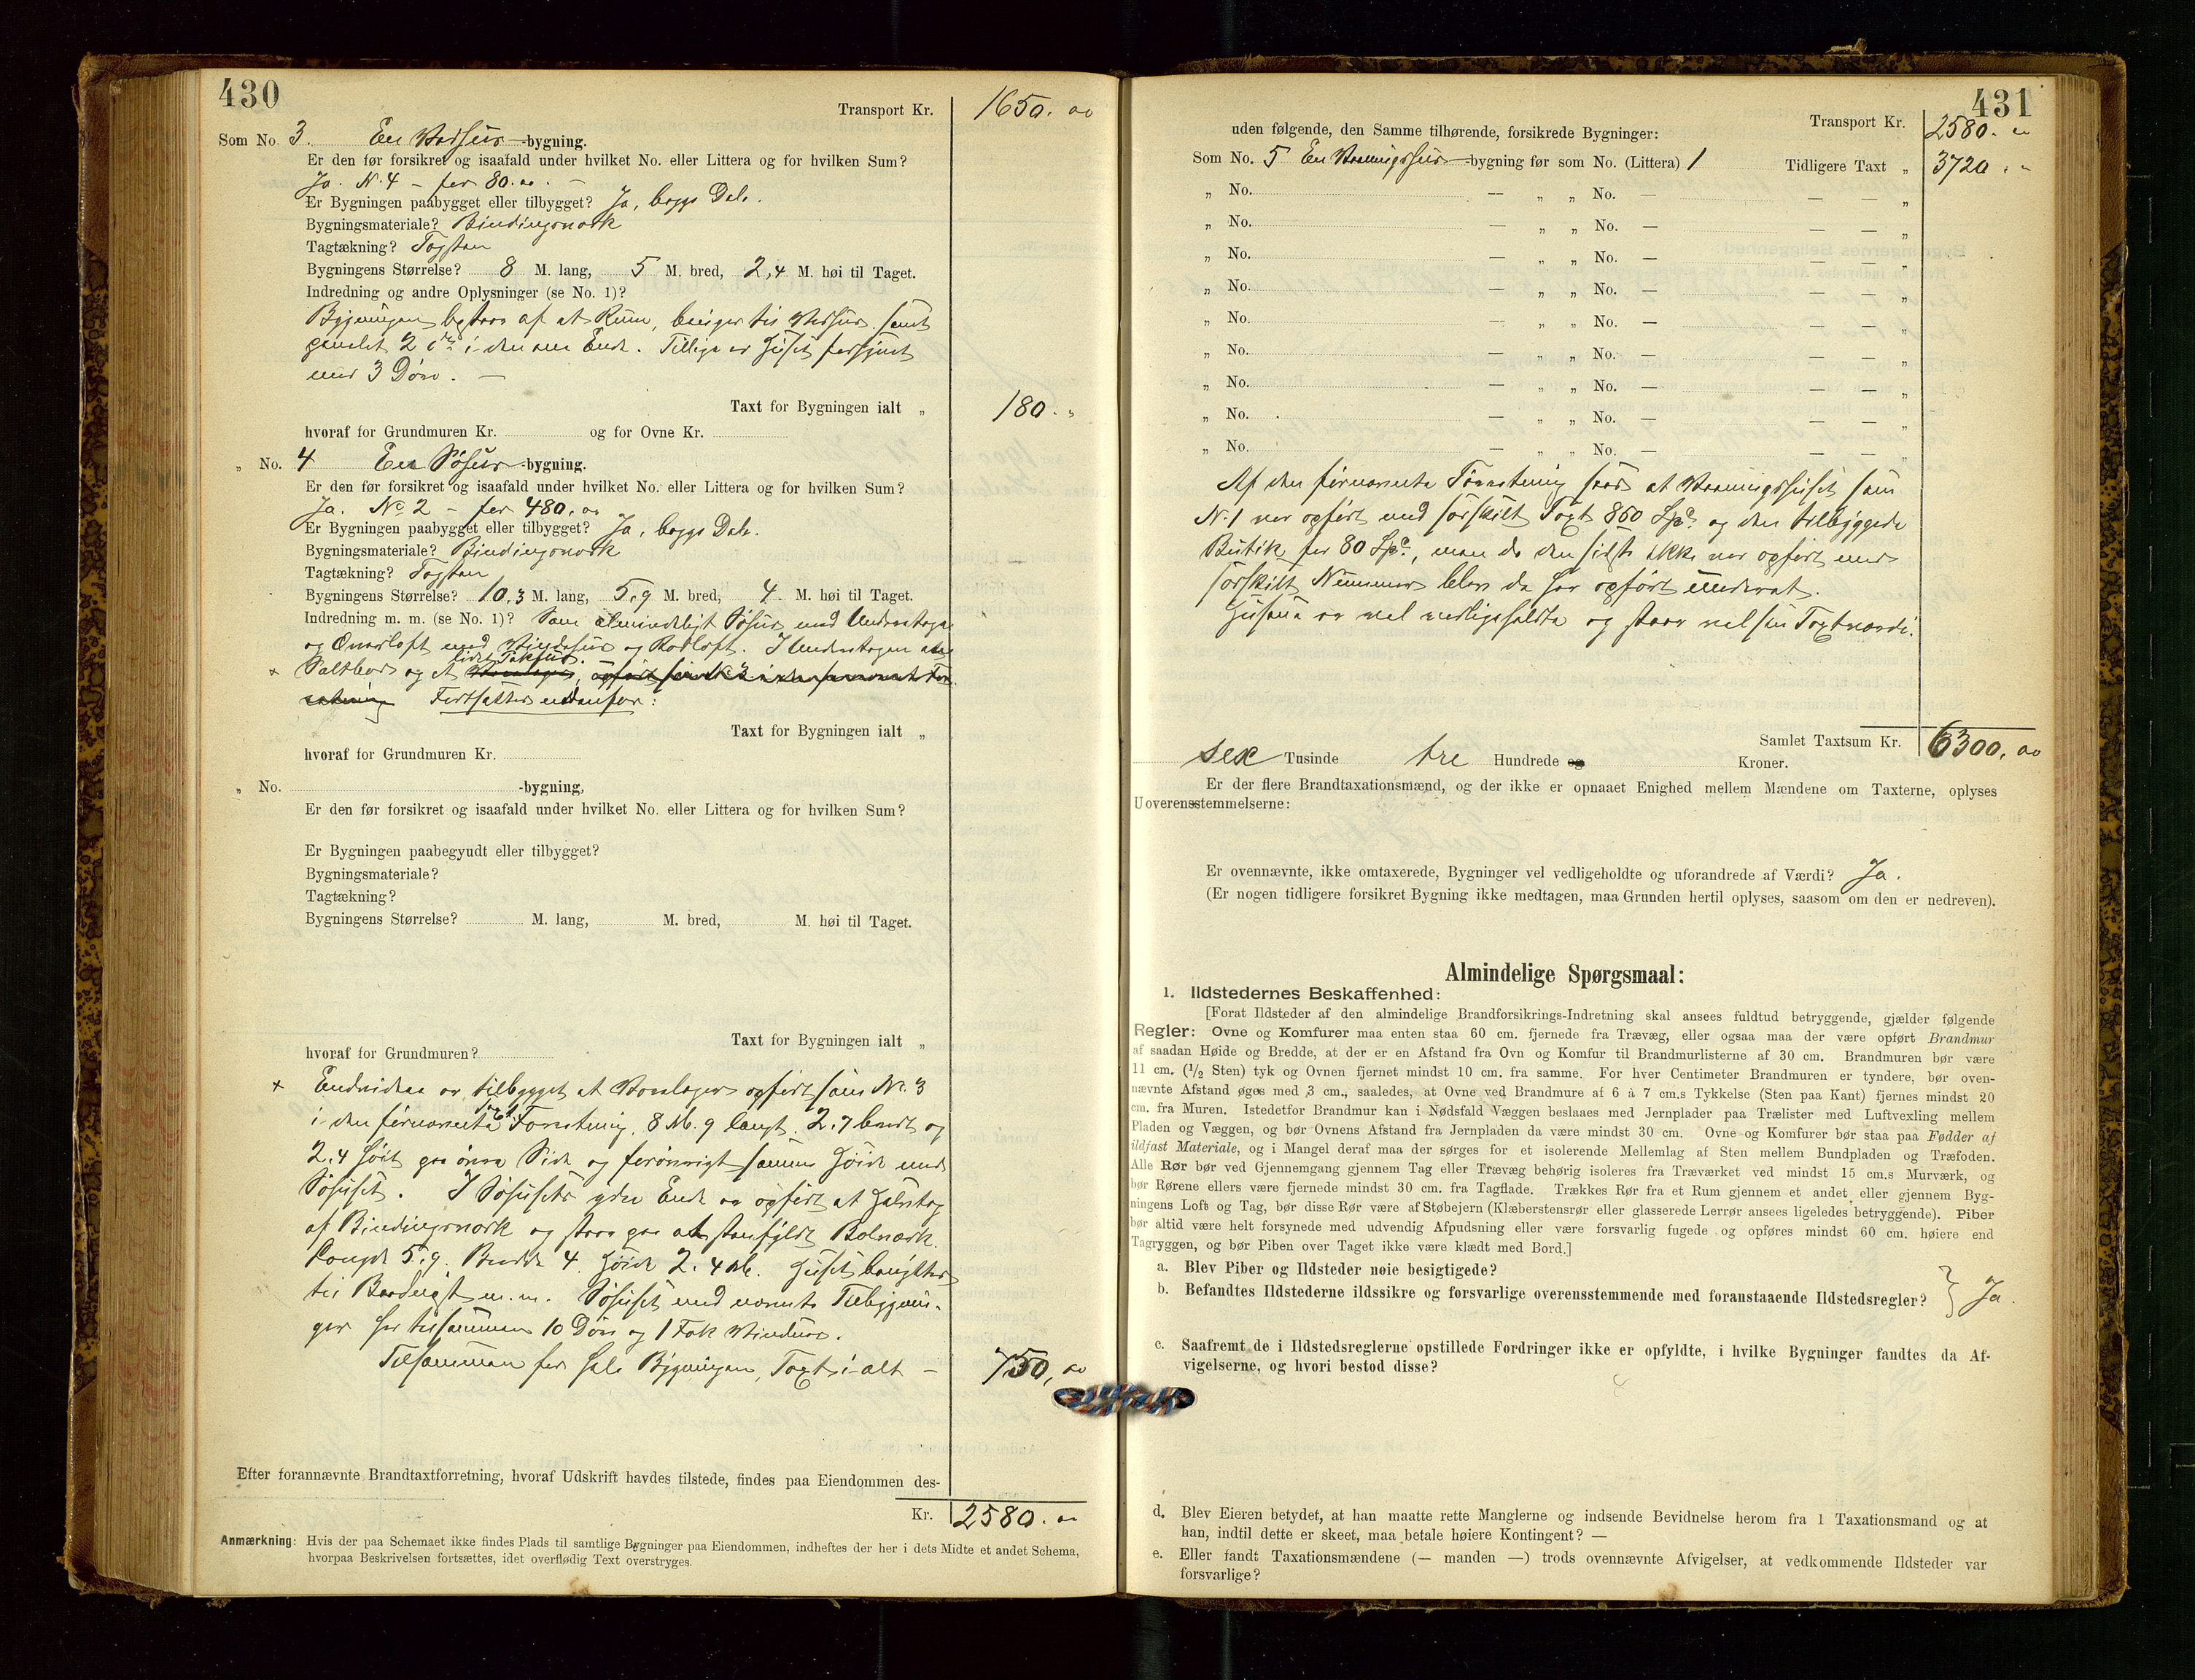 430
Transport Kr. 1650. 00
Som No. 3. En Vedhus-bygning.
Er den før forsikret og isaafald under hvilket No. eller Littera og for hvilken Sum?
Ja. N. 4 - for 80. 00. -
Er Bygningen paabygget eller tilbygget? Ja, begge Dele.
Bygningsmateriale? Bindingsverk
Tagtækning? Tagsten
Bygningens Størrelse? 8 M. lang, 5 M. bred, 2,4 M. høi til Taget.
Indredning og andre Oplysninger (se No. 1)?
Bygningen bestaar af et Rum, benyttes til Vedhus samt
2 i den ene Ende. Tillige er Huset forsynet
med 3 Døre. -
Taxt for Bygningen ialt „ 180. „
hvoraf for Grundmuren Kr. og for Ovne Kr.
„ No. 4 En Søhus-bygning.
Er den før forsikret og isaafald under hvilket No. eller Littera og for hvilken Sum?
Ja. No 2 - for 480, 00
Er Bygningen paabygget eller tilbygget? Ja, begge Dele.
Bygningsmateriale? Bindingsverk
Tagtækning? Tagsten
Bygningens Størrelse? 10,3 M. lang, 5,9 M. bred, 4 M. høi til Taget.
Indredning m. m. (se No. 1)? Som almindeligt Søhus med Underetage
og Overloft med Vindehus og Rotloft. I Underetagen
× Saltbod og et lidet
Fortsættes nedenfor:
Taxt for Bygningen ialt „
hvoraf for Grundmuren Kr.
„ No. -bygning,
Er den før forsikret og isaafald under hvilket No. eller Littera og for hvilken Sum?
Er Bygningen paabegyudt eller tilbygget?
Bygningsmateriale?
Tagtækning?
Bygningens Størrelse? M. lang, M. bred, M. høi til Taget.
Taxt for Bygningen ialt „
hvoraf for Grundmuren?
× Endvidere er tilbygget et opført som N. 3
i den førnævnte Forretning, 8 M. 9 langt, 2,7 bredt og
2.4 høit paa øvre Side og forøvrigt samme Høide med
Søhuset. I Søhusets ydre Ende er opført et Halvtag
af Bindingsverk og staar paa et stenfyldt Bolverk.
Længde 5,9. Bredde 4. Høide 2.4 M. Huset benyttes
til m.m. Søhuset med nævnte Tilbygnin-
ger har tilsammen 10 Døre og 1 Fak Vinduer.
Tilsammen for hele Bygningen, Taxt i alt - 750, 00
Efter forannævnte Brandtaxtforretning, hvoraf Udskrift havdes tilstede, findes paa Eiendommen des-
Kr. 2580. 00
Anmærkning: Hvis der paa Schemaet ikke findes Plads til samtlige Bygninger paa Eiendommen, indheftes der her i dets Midte et andet Schema,
hvorpaa Beskrivelsen fortsættes, idet overflødig Text overstryges.
431
Transport Kr. 2580. 00
uden følgende, den Samme tilhørende, forsikrede Bygninger:
Som No. 5 En Vaaningshus-bygning før som No. (Littera) 1 Tidligere Taxt „ 3720. „
„ No. — „ „ No. — — — „
„ No. — „ „ No. — — — „
„ No. — „ „ No. — — — „
„ No. — „ „ No. — — — „
„ No. — „ „ No. — — — „
„ No. — „ „ No. — — — „
„ No. — „ „ No. — — — „
„ No. — „ „ No. — — — „
„ No. — „ „ No. — — — „
Af den førnævnte Forretning sees at Vaaningshuset som
N. 1 var opført med særskilt Taxt 860 Spd. og den tilbyggede
Butik for 80 Spd., men da den sidste ikke var opført med
særskilt Nummer blev da her opført underet.
Husene er vel vedligeholdte og staar vel sin Taxtværdi.
Samlet Taxtsum Kr. 6300, 00
sex Tusinde tre Hundrede og Kroner.
Er der flere Brandtaxationsmænd, og der ikke er opnaaet Enighed mellem Mændene om Taxterne, oplyses
Uoverensstemmelserne:
Er ovennævnte, ikke omtaxerede, Bygninger vel vedligeholdte og uforandrede af Værdi? Ja.
(Er nogen tidligere forsikret Bygning ikke medtagen, maa Grunden hertil oplyses, saasom om den er nedreven).
Almindelige Spørgsmaal:
1. Ildstedernes Beskaffenhed:
[Forat Ildsteder af den almindelige Brandforsikrings-Indretning skal ansees fuldtud betryggende, gjælder følgende
Regler: Ovne og Komfurer maa enten staa 60 cm. fjernede fra Trævæg, eller ogsaa maa der være opført Brandmur
af saadan Høide og Bredde, at der er en Afstand fra Ovn og Komfur til Brandmurlisterne af 30 cm. Brandmuren bør være
11 cm. (1/2 Sten) tyk og Ovnen fjernet mindst 10 cm. fra samme. For hver Centimeter Brandmuren er tyndere, bør oven-
nævnte Afstand øges med 3 cm., saaledes, at Ovne ved Brandmure af 6 à 7 cm.s Tykkelse (Sten paa Kant) fjernes mindst 20
cm. fra Muren. Istedetfor Brandmur kan i Nødsfald Væggen beslaaes med Jernplader paa Trælister med Luftvexling mellem
Pladen og Væggen, og bør Ovnens Afstand fra Jernpladen da være mindst 30 cm. Ovne og Komfurer bør staa paa Fødder af
ildfast Materiale, og i Mangel deraf maa der sørges for et isolerende Mellemlag af Sten mellem Bundpladen og Træfoden.
Alle Rør bør ved Gjennemgang gjennem Tag eller Trævæg behørig isoleres fra Træværket ved mindst 15 cm.s Murværk, og
bør Rørene ellers være fjernede mindst 30 cm. fra Tagflade. Trækkes Rør fra et Rum gjennem et andet eller gjennem Byg-
ningens Loft og Tag, bør disse Rør være af Støbejern (Klæberstensrør eller glasserede Lerrør ansees ligeledes betryggende). Piber
bør altid være helt forsynede med udvendig Afpudsning eller være forsvarlig fugede og opføres mindst 60 cm. høiere end
Tagryggen, og bør Piben over Taget ikke være klædt med Bord.]
a. Blev Piber og Ildsteder nøie besigtigede?
b. Befandtes Ildstederne ildssikre og forsvarlige overensstemmende med foranstaaende Ildstedsregler? } Ja.
c. Saafremt de i Ildstedsreglerne opstillede Fordringer ikke er opfyldte, i hvilke Bygninger fandtes da Af-
vigelserne, og hvori bestod disse?
d. Blev Eieren betydet, at han maatte rette Manglerne og indsende Bevidnelse herom fra 1 Taxationsmand og at
han, indtil dette er skeet, maa betale høiere Kontingent? —
e. Eller fandt Taxationsmændene (— manden —) trods ovennævnte Afvigelser, at vedkommende Ildsteder var
forsvarlige?